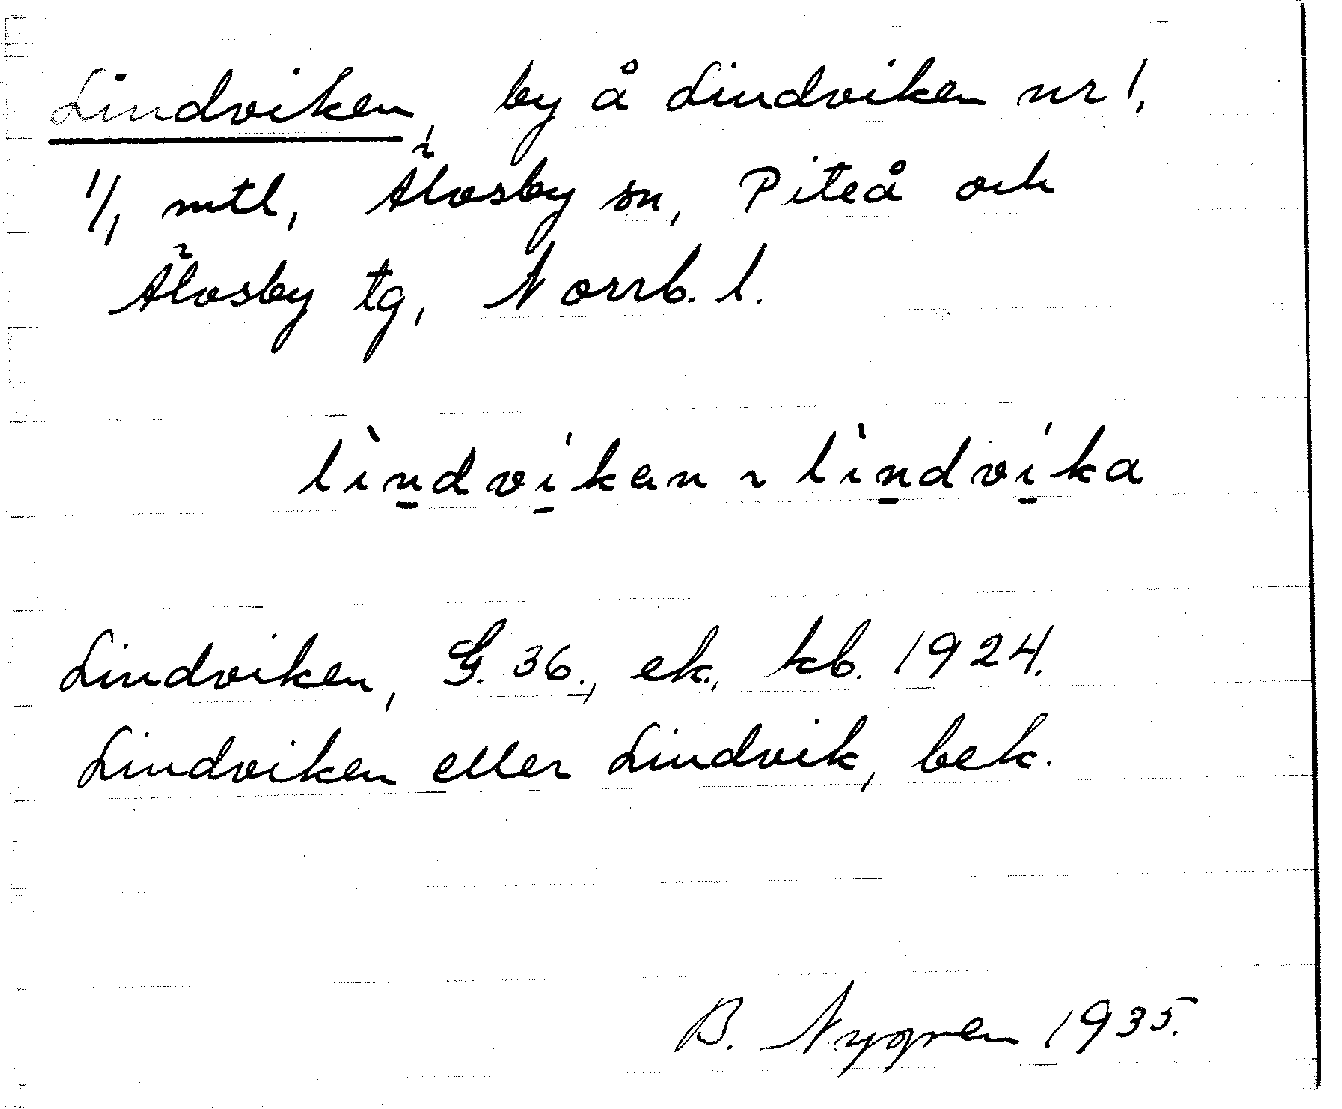 Lindviken, by å Lindviken nr 1,
1/1 mtl, Älvsby sn, Piteå och
Älvsby tg, Norrb. l.
lìṉdví̱kan ~ lìṉdví̱ka
Lindviken, G. 36., ek., kb. 1924.
Lindviken eller Lindvik, bek.
B. Nygren 1935.